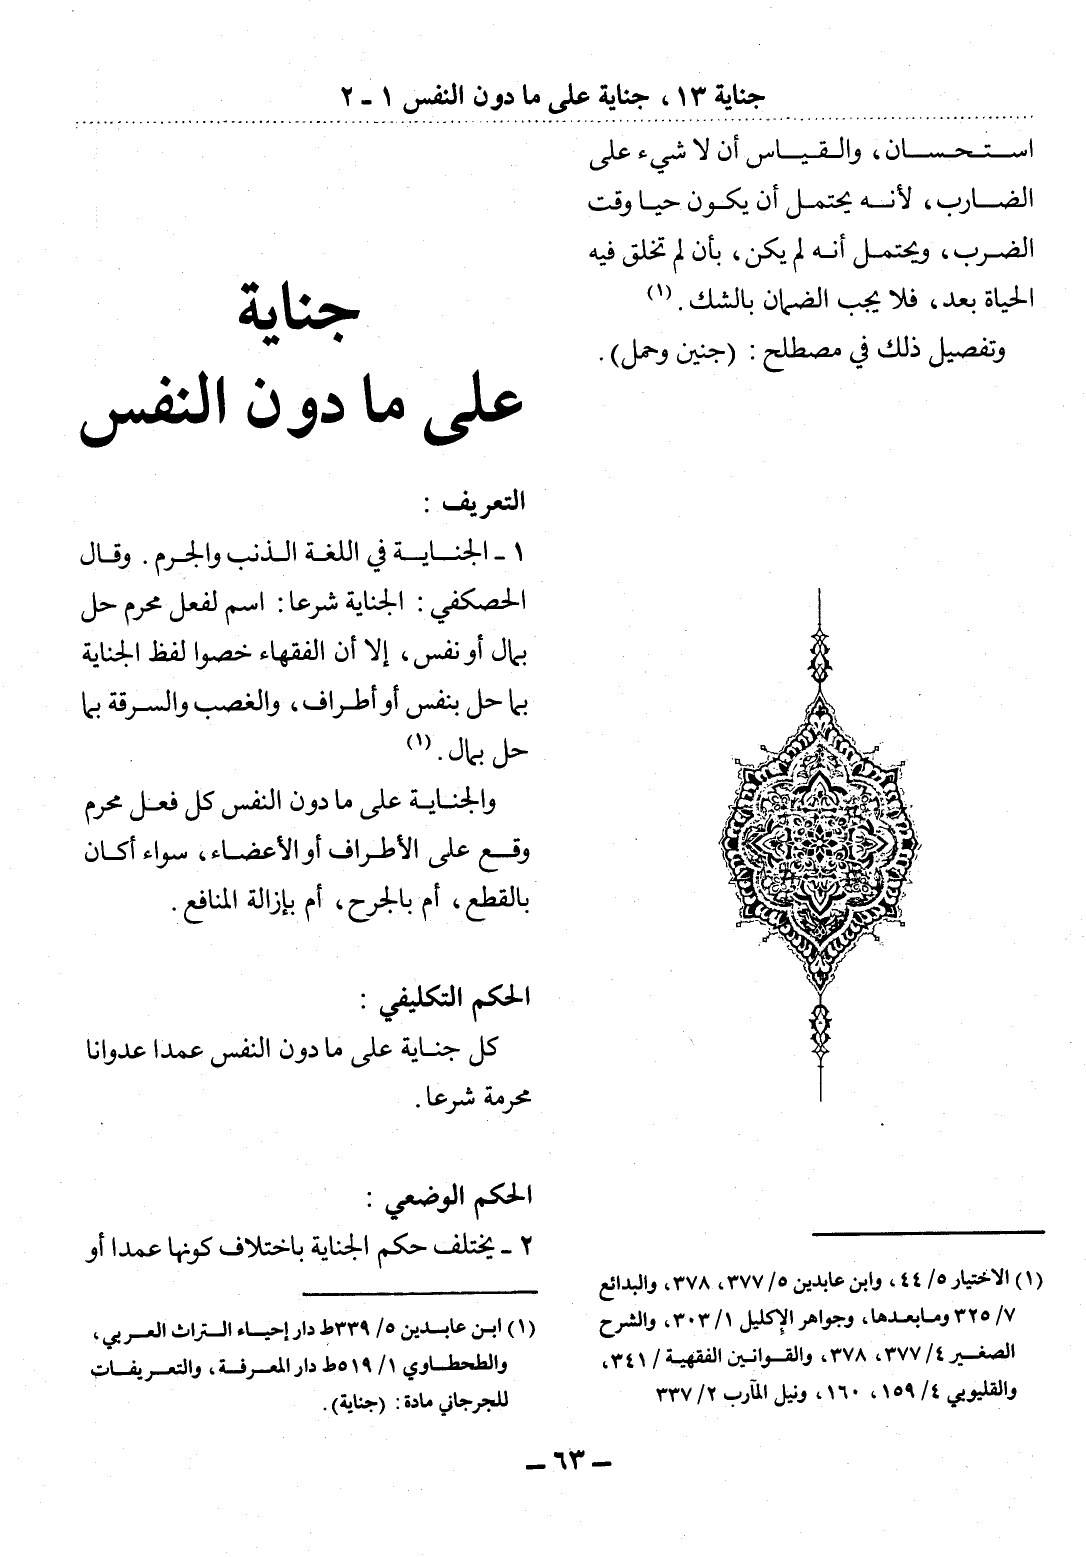 جناية ١٣، جناية على ما دون النفس ١ - ٢
استحسان، والقياس أن لا شيء على
الضارب، لأنه يحتمل أن يكون حيا وقت
الضرب، ويحتمل أنه لم يكن، بأن لم تخلق فيه
الحياة بعد، فلا يجب الضمان بالشك. (١)
وتفصيل ذلك في مصطلح : (جنين وحمل).
(١) الاختيار ٥/ ٤٤، وابن عابدين ٥/ ٣٧٧، ٣٧٨، والبدائع
٧/ ٣٢٥ ومابعدها، وجواهر الإكليل ١/ ٣٠٣، والشرح
الصغير ٤/ ٣٧٧، ٣٧٨، والقوانين الفقهية / ٣٤١،
والقليوبي ٤/ ١٥٩، ١٦٠، ونيل المآرب ٢/ ٣٣٧
جناية
على ما دون النفس
التعريف :
١ - الجناية في اللغة الذنب والجرم. وقال
الحصكفي : الجناية شرعا : اسم لفعل محرم حل
بمال أو نفس، إلا أن الفقهاء خصوا لفظ الجناية
بما حل بنفس أو أطراف، والغصب والسرقة بما
حل بمال. (١)
والجناية على ما دون النفس كل فعل محرم
وقع على الأطراف أو الأعضاء، سواء أكان
بالقطع، أم بالجرح، أم بإزالة المنافع.
الحكم التكليفي :
كل جناية على ما دون النفس عمدا عدوانا
محرمة شرعا.
الحكم الوضعي :
٢ - يختلف حكم الجناية باختلاف كونها عمدا أو
(١) ابن عابدين ٥/ ٣٣٩ط دار إحياء التراث العربي،
والطحطاوي ١/ ٥١٩ط دار المعرفة، والتعريفات
للجرجاني مادة : (جناية).
- ٦٣ -